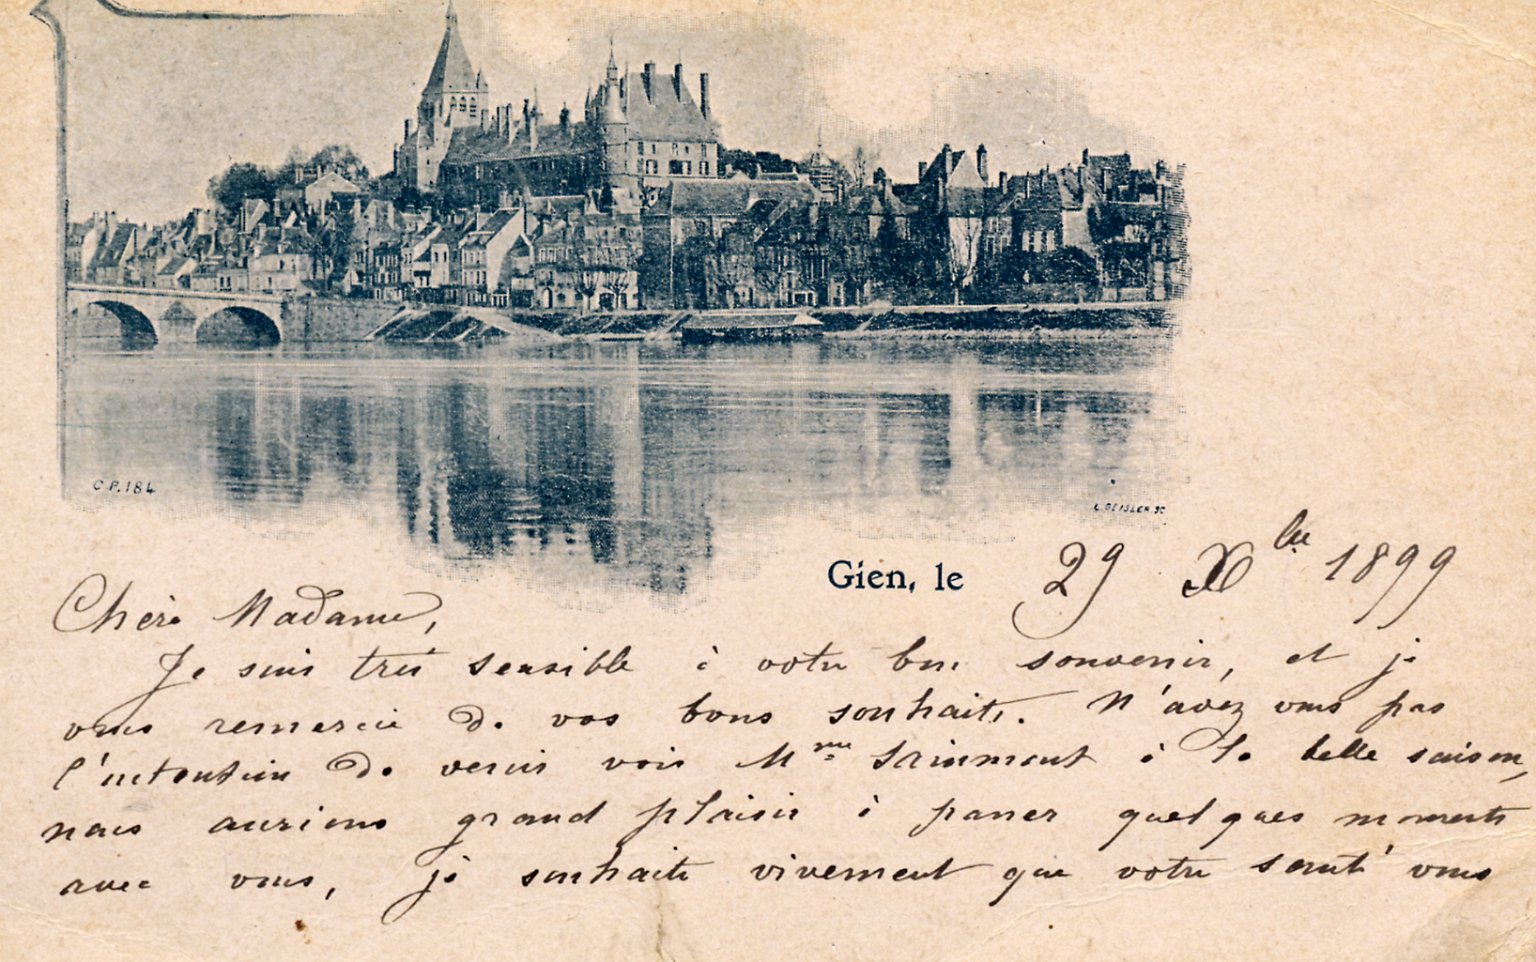 C.P. 184
L. GEISLER SC
Gien, le 29 Xbre 1899
Chère Madame,
Je suis très sensible à votre bon souvenir, et je
vous remercie de vos bons souhaits. N'avez vous pas
l'intention de venir voir Mme à la belle saison,
nous aurions grand plaisir à passer quelques moments
avec vous, je souhaite vivement que votre santé vous